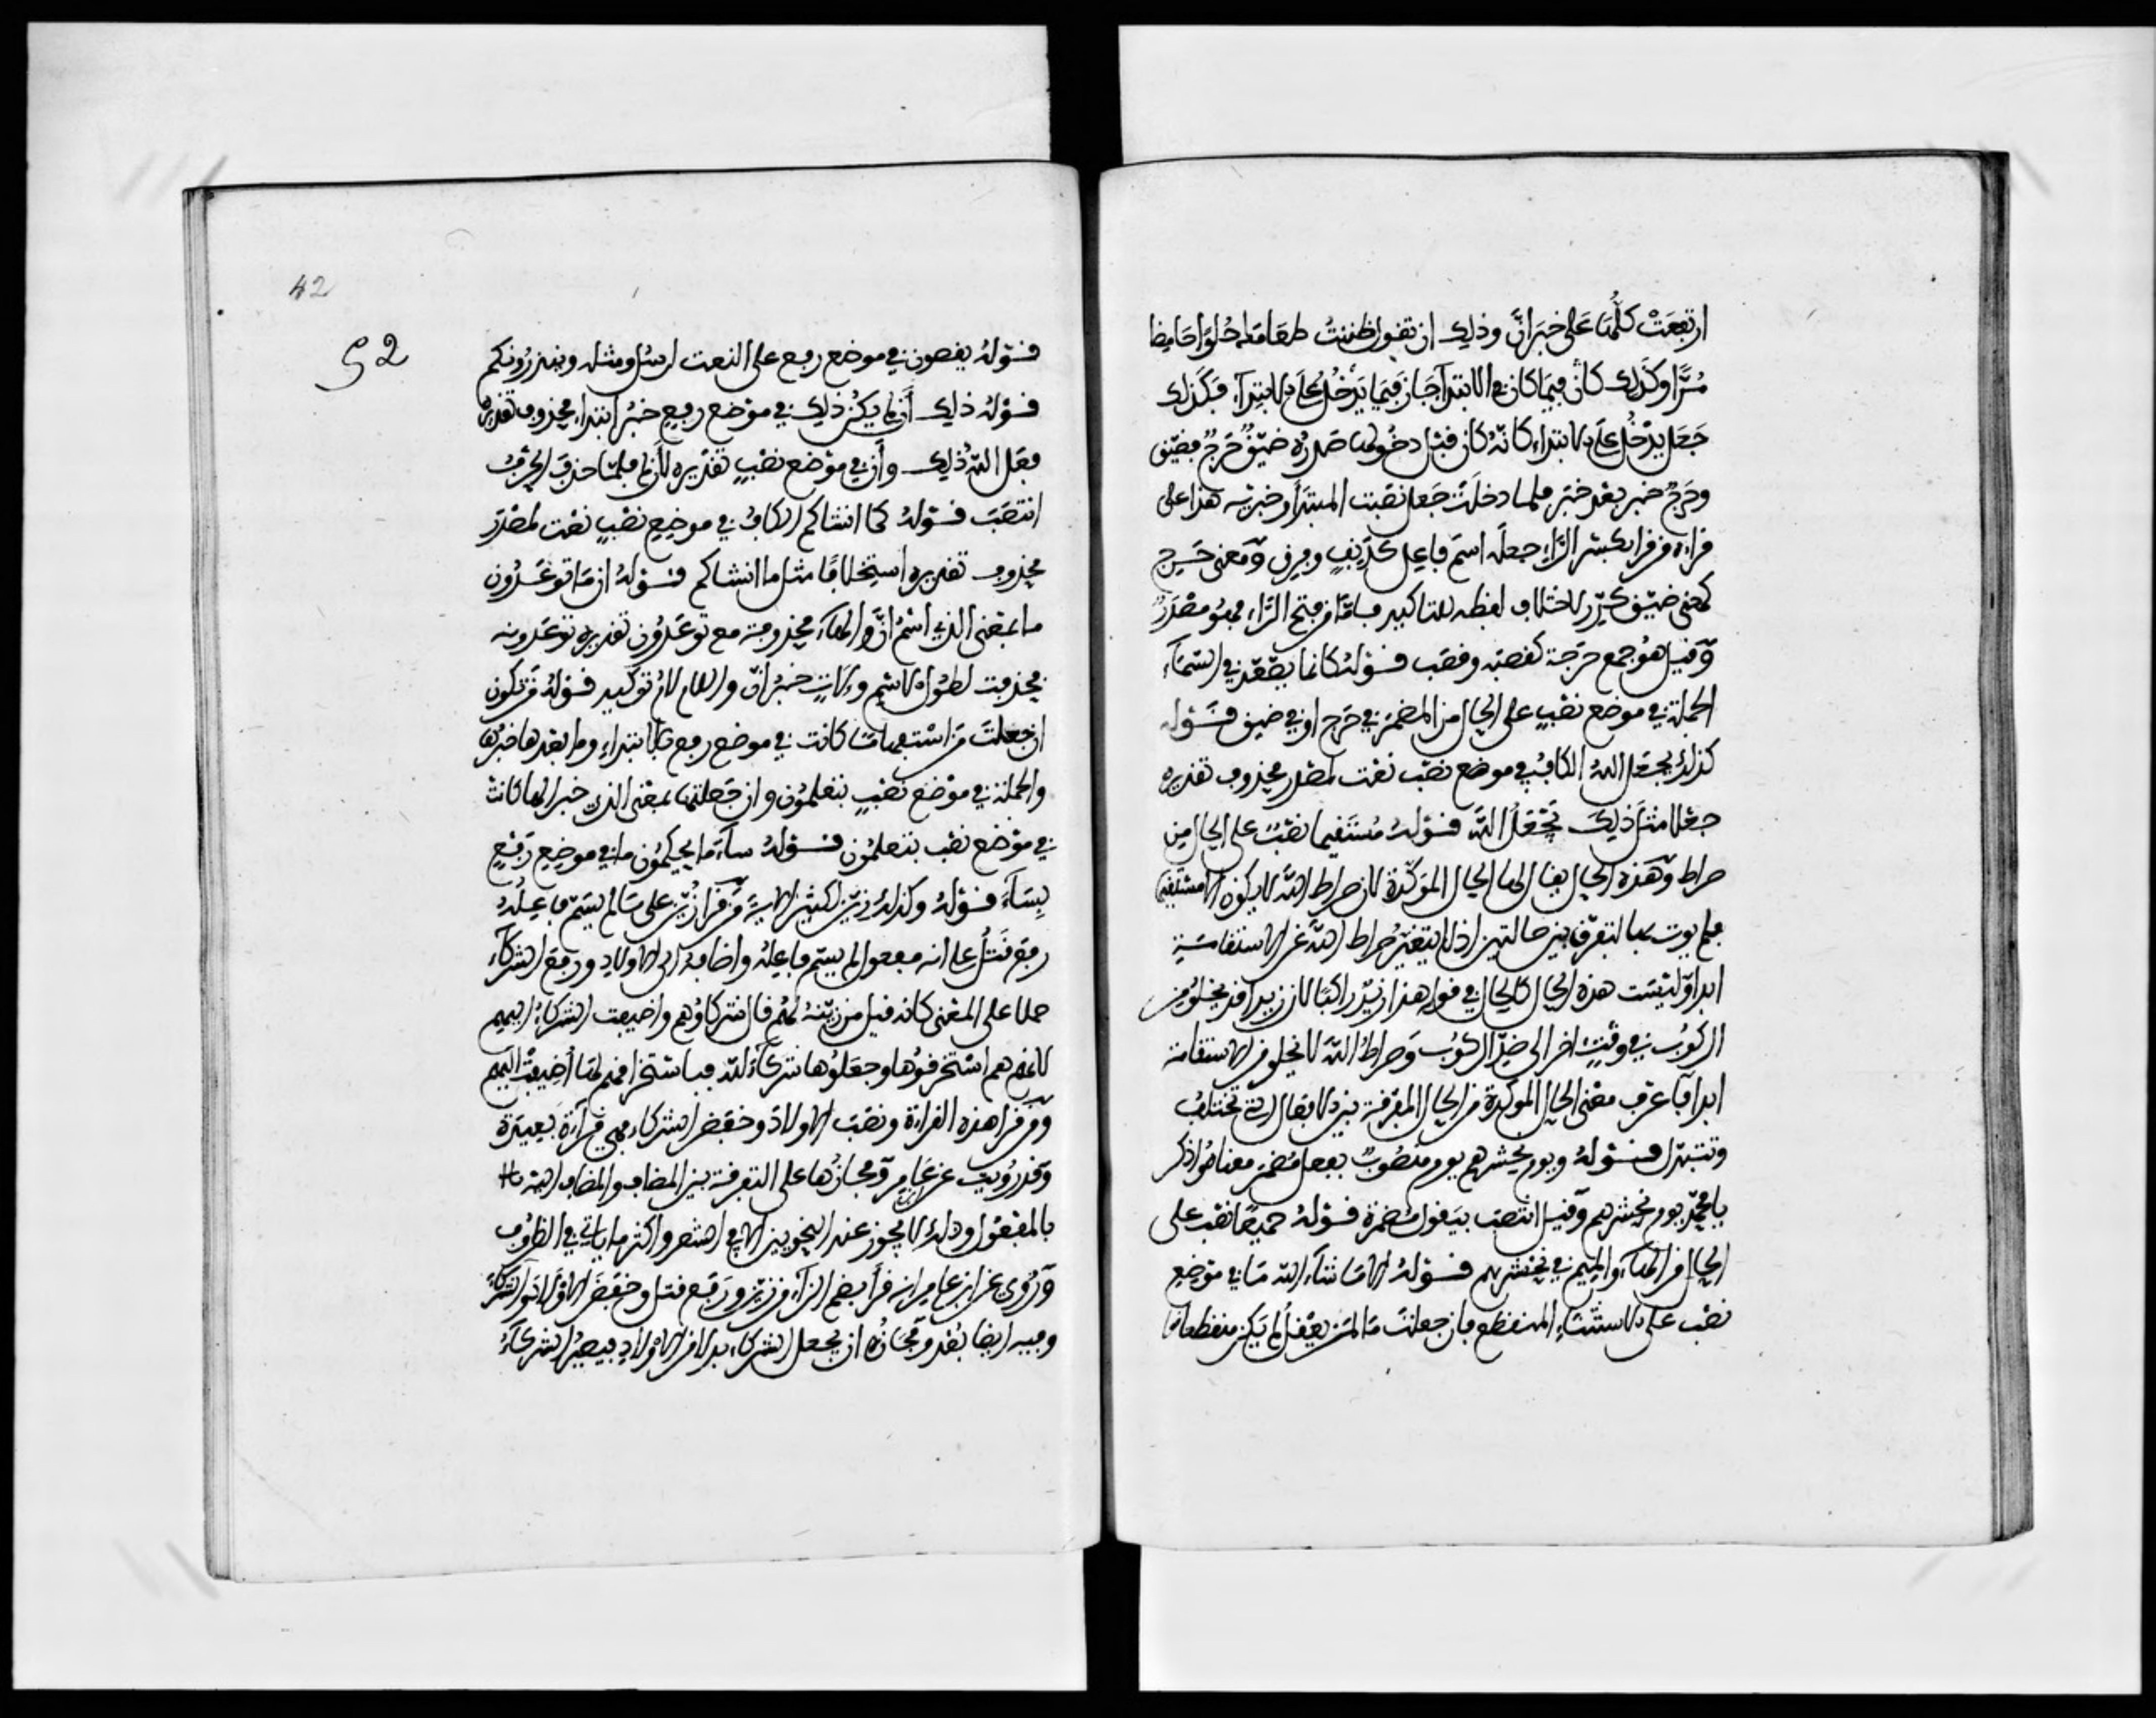 ارتفعت كلها على خبر ان وذلك ان تقول ظننت طعامك حلوا حامضا
مرا وكذلك كان فيما كان في الابتدا جاز فيما يدخل على الابتدا فكذلك
جعل يدخل على الابتداء كانه كان قبل دخولها صدره ضيق حرج فضيق
وحرج خبر بعد خبر فلما دخلت جعل نصبت المبتدأ وخبريه هذا على
قراءة من قرا بكسر الراء جعله اسم فاعل كدنف وفرق ومعنى حرج
كمعنى ضيق كرر لاختلاف لفظه للتاكيد فاما من فتح الراء فهو مصدر
وقيل هو جمع حرجة كقصبة وقصب قوله كانما يصعد في السماء
الجملة في موضع نصب على الحال من المضمر في حرج او في ضيق قوله
كذلك يجعل الله الكاف في موضع نصب نعت لمصدر محذوف تقديره
جعلا مثل ذلك يجعل الله قوله مستقيما نصب على الحال من
صراط وهذه الحال يقال لها الحال الموكدة لان صراط الله لا يكون الا مستقيما
فلم يوت بها لتفرق بين حالتين اذ لا يتغير صراط الله عن الاستقامة
ابدا وليست هذه الحال كالحال في قوله هذا زيد راكبا لان زيدا قد يخلو من
الركوب في وقت اخر الى ضد الركوب وصراط الله لا يخلو من الاستقامة
ابدا فاعرف معنى الحال الموكدة من الحال المفرقة بين الافعال التي تختلف
وتتبدل قوله ويوم يحشرهم يوم منصوب بفعل مضمر معناه واذكر
يا محمد يوم نحشرهم وقيل انتصب بيقول مضمرة قوله جميعا نصب على
الحال من الهاء والميم في نحشرهم قوله الا ما شاء الله ما في موضع
نصب على الاستثناء المنقطع فان جعلت ما لمن يعقل لم يكن منقطعا
42
52
قوله يقصون في موضع رفع على النعت لرسل ومثله وينذرونكم
قوله ذلك أن لم يكن ذلك في موضع رفع خبر ابتداء محذوف تقديره
فعل الله ذلك وأن في موضع نصب تقديره لأن لم فلما حذف الحرف
انتصب قوله كما انشاكم الكاف في موضع نصب نعت لمصدر
محذوف تقديره استخلافا مثل ما انشاكم قوله ان ما توعدون
ما بمعنى الذي اسم ان والهاء محذوفة مع توعدون تقديره توعدونه
فحذفت لطول الاسم ولات خبر ان واللام لام توكيد قوله من تكون
ان جعلت من استفهاما كانت في موضع رفع بالابتداء وما بعدها خبرها
والجملة في موضع نصب بتعلمون وان جعلتها بمعنى الذي خبرا لها كانت
في موضع نصب بتعلمون قوله ساء ما يحكمون ما في موضع رفع
بساء قوله وكذلك زين لكثير الاية من قرا زين على ما لم يسم فاعله
رفع قتل على انه مفعول لم يسم فاعله واضافه الى الاولاد ورفع الشركاء
حملا على المعنى كانه قيل من زينه لهم قال شركاوهم واضيفت الشركاء اليهم
لانهم هم استخرقوها وجعلوها شركاء لله فباستخراقهم لها أضيفت اليهم
ومن قرا هذه القراءة ونصب الاولاد وخفض الشركاء فهي قراءة بعيدة
وقد رويت عن ابن عامر ومجازها على التفرقة بين المضاف والمضاف اليه
بالمفعول وذلك لا يجوز عند النحويين الا في الشعر واكثر ما ياتي في الظروف
وروي عن ابن عامر انه قرأ بضم الزاء من زين ورفع قتل وخفض الاولاد والشركاء
وفيه ايضا بعد ومجازه ان يجعل الشركاء بدلا من الاولاد فيصير الشركاء